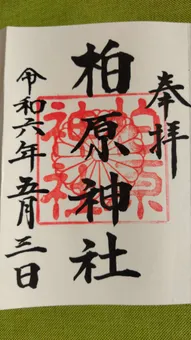 奉拝
柏原神社
令和六年五月三日
柏原
神社